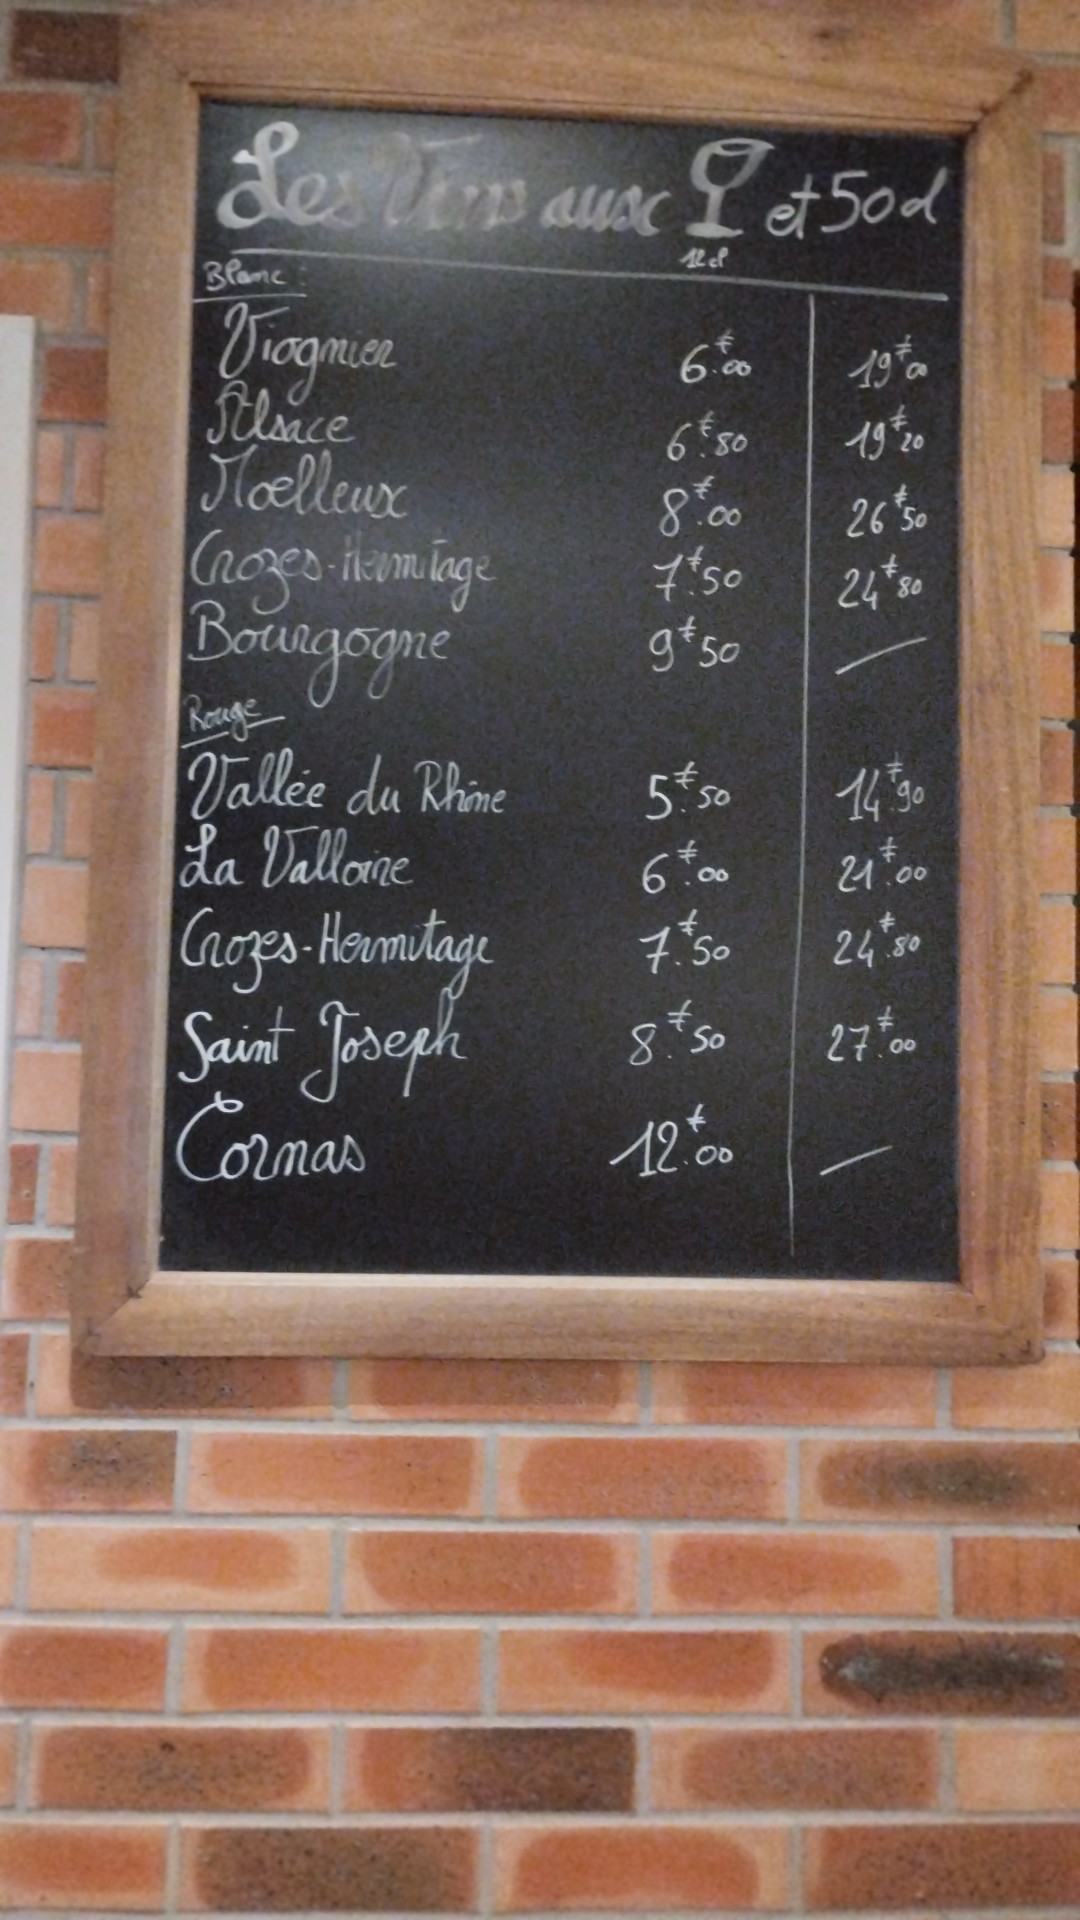 Les Vins aux et 50cl
12cl
Blanc :
Viognier 6.€00 19€00
Alsace 6€.80 19€20
Moelleux 8€.00 26€50
Crozes-Hermitage 7.€50 24€80
Bourgogne 9€50 —
Rouge
Vallée du Rhône 5€.50 14€.90
La Valloire 6€.00 21€.00
Crozes-Hermitage 7.€50 24€.80
Saint Joseph 8.€50 27€.00
Cornas 12€.00 —